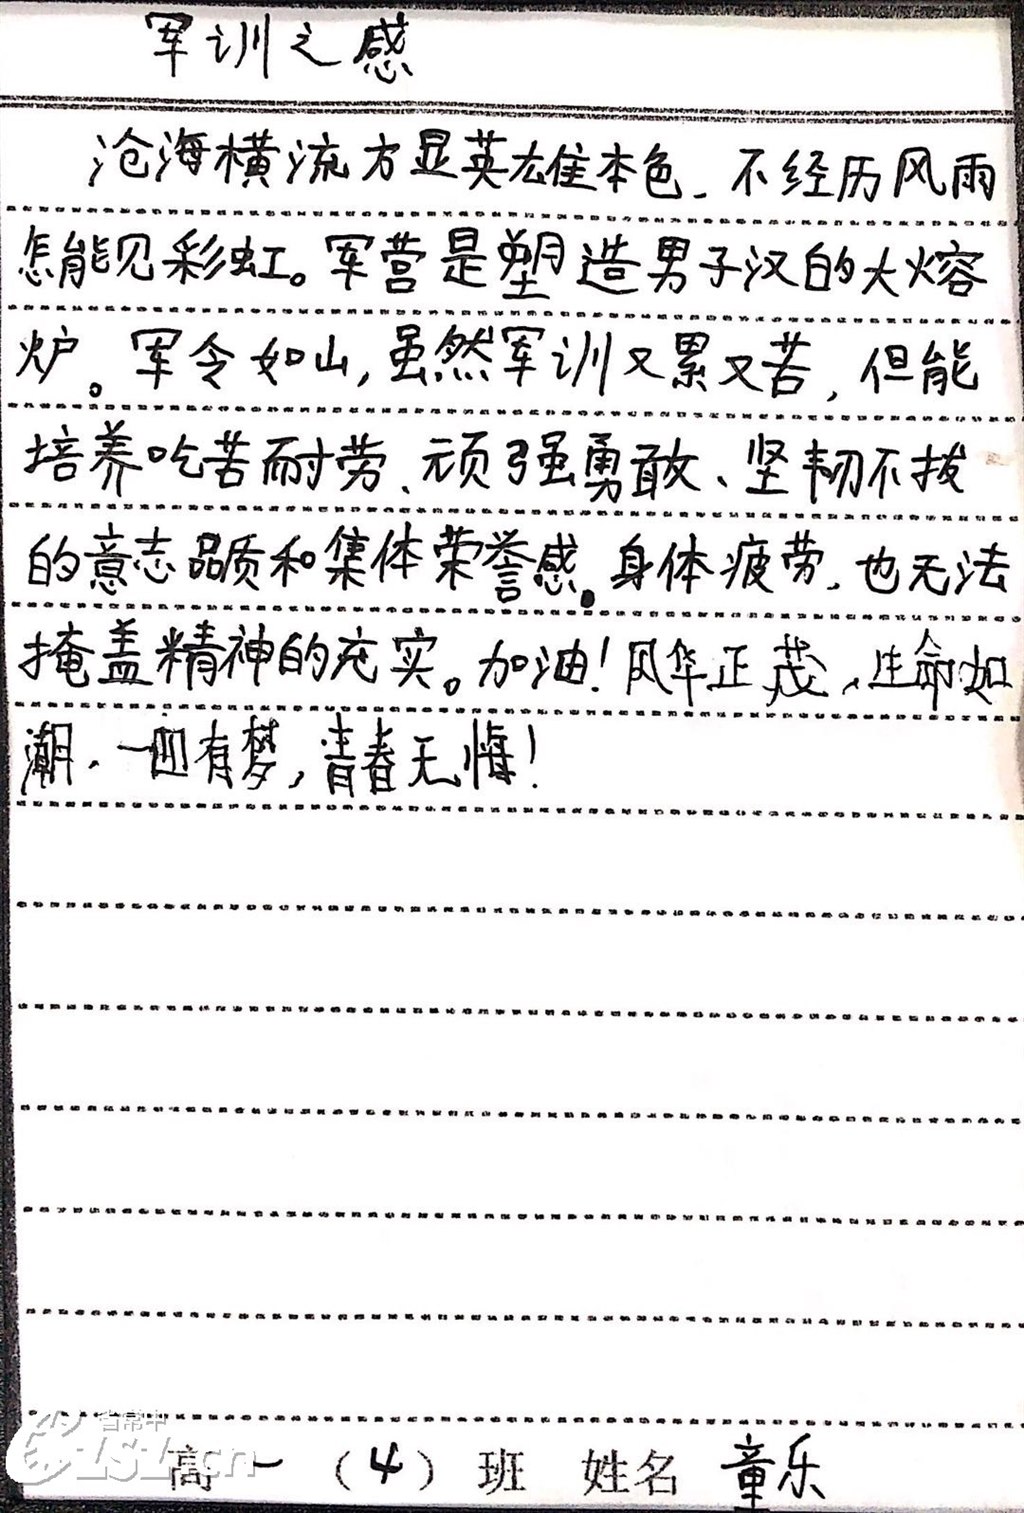 军训之感
沧海横流方显英雄本色，不经历风雨
怎能见彩虹。军营是塑造男子汉的大熔
炉。军令如山，虽然军训又累又苦，但能
培养吃苦耐劳、顽强勇敢、坚韧不拔
的意志品质和集体荣誉感。身体疲劳，也无法
掩盖精神的充实。加油！风华正茂，生命如
潮，一迴有梦，青春无悔！
省常中
CSLSL.cn
高一（4）班 姓名 童乐